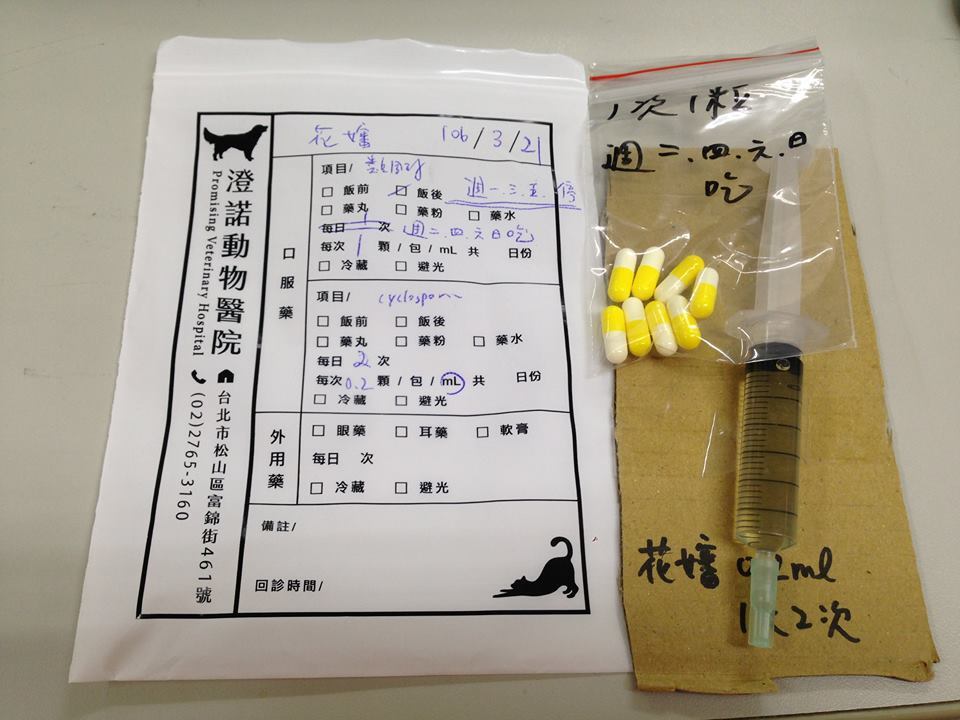 澄諾動物醫院
Promising Veterinary Hospital
台北市松山區富錦街461號
(02)2765-3160
花嬸 106/3/21
口服藥
項目/ 類固醇
飯前 飯後 週一.三.五.停
藥丸 藥粉 藥水
每日 1 次 週二.四.六.日吃
每次 1 顆/包/mL 共 日份
冷藏 避光
項目/ cyclosporin
飯前 飯後
藥丸 藥粉 藥水
每日 2 次
每次 0.2 顆/包/mL 共 日份
冷藏 避光
外用藥
眼藥 耳藥 軟膏
每日 次
冷藏 避光
備註/
回診時間/
1次1粒
週二.四.六.日
吃
花嬸 0.2ml
2次